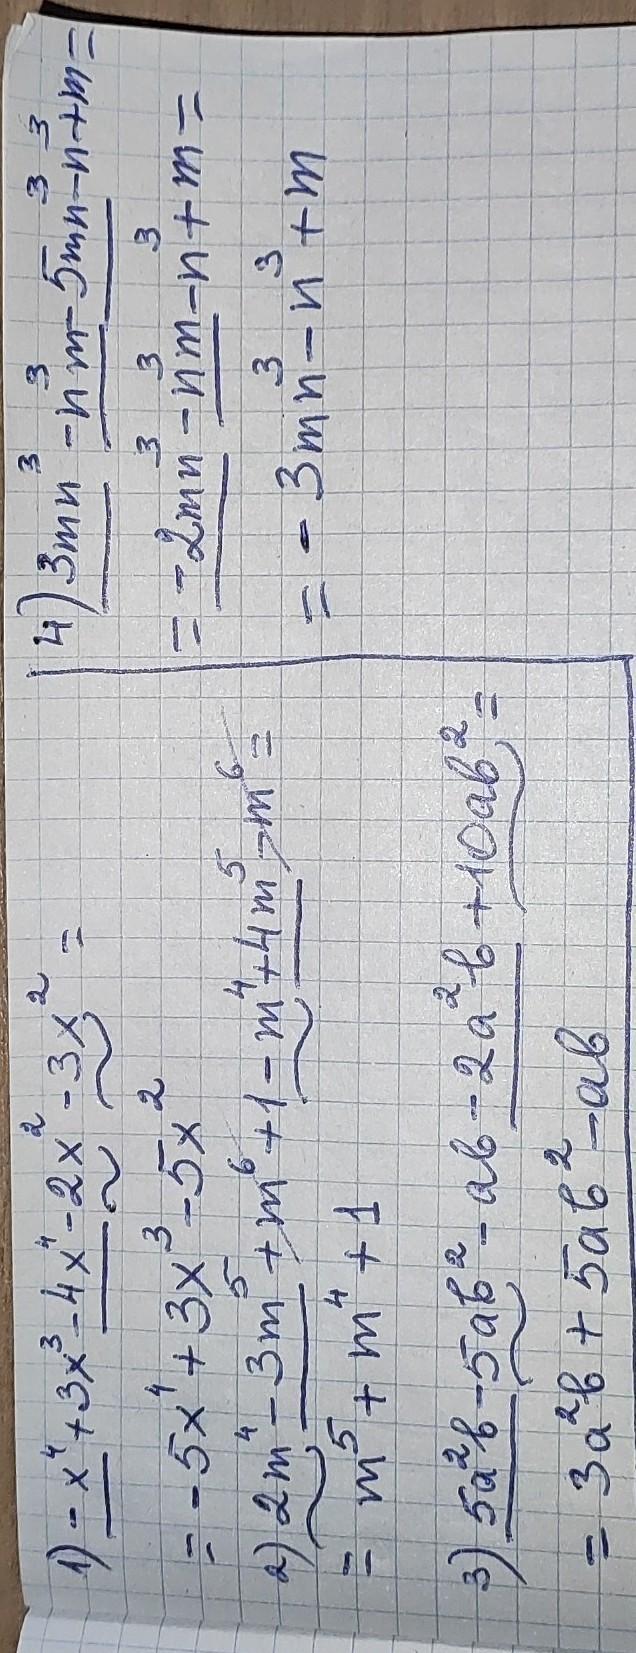 1) -x⁴+3x³-4x⁴-2x²-3x²=
= -5x⁴+3x³-5x²
2) 2m⁴-3m⁵+m⁶+1-m⁴+4m⁵-m⁶=
= m⁵+m⁴+1
3) 5a²b-5ab²-ab-2a²b+10ab²=
= 3a²b+5ab²-ab
4) 3mn³-n³m-5mn³-n³+m=
= -2mn³-n³m-n³+m=
= -3mn³-n³+m